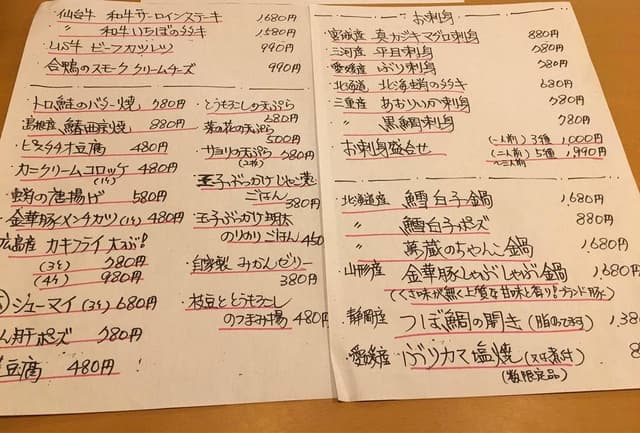 仙台牛 和牛サーロインステーキ 1,680円
〃 和牛いちぼのタタキ 1,580円
牛 ビーフカツレツ 990円
合鴨のスモーク クリームチーズ 990円
トロ鮭のバター焼 780円
島根産 鰆西京焼 880円
ピータン 豆腐 480円
カニクリームコロッケ (1ケ) 480円
蛸の唐揚げ 580円
金華豚メンチカツ(1ケ) 480円
広島産 カキフライ 大つぶ!
(3ケ) 780円
(4ケ) 980円
シューマイ (3ケ) 680円
ん肝ポン酢 780円
豆腐 480円
・とうもろこしの天ぷら 680円
・菜の花の天ぷら 500円
・サヨリの天ぷら (2本) 780円
・玉子ぶっかけじゃこ
ごはん 380円
・玉子ぶっかけ明太
のりのりごはん 450
・自家製 みかんゼリー 380円
・枝豆ととうもろこし
のつまみ揚 480円
お刺身
宮城産 真カジキマグロ刺身 880円
三河産 平目刺身 780円
愛媛産 ぶり刺身 780円
北海道 北海蛸のタタキ 680円
三重産 あおりいか刺身 780円
〃 黒鯛刺身 780円
お刺身盛合せ (一人前) 3種 1,000円
(二人前) 5種 1,990円
〜三人前
北海道産 鱈白子鍋 1,680円
〃 鱈白子ポン酢 880円
〃 萬蔵のちゃんこ鍋 1,680円
・山形産 金華豚しゃぶしゃぶ鍋 1,680円
(くさ味が無く上質な甘味と香り!ブランド豚)
・静岡産 つぼ鯛の開き (脂のってます) 1,380
・愛媛産 ぶりカマ塩焼 (又は煮付)
(数限定品)